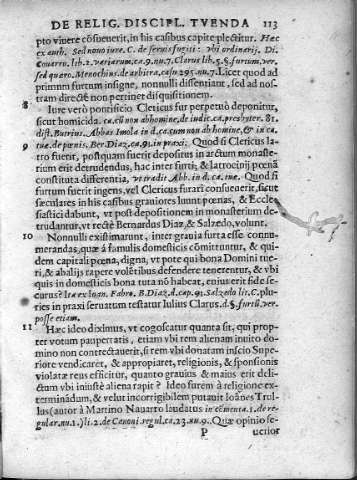 DE RELIG. DISCIPL. TVENDA 113
pto vivere cõsueuerit, in his casibus capite plectitur. Hæc
ex auth. Sed nouo iure. C. de seruis fugiti: vbi ordinarij. Di.
Couarro. lib. 2. variarum. ca. 9. nu. 7. Clarus lib. 5. §. furtum. ver.
sed quæro. Menochius de arbitra. casu 295. nu. 7. Licet quod ad
primum furtum insigne, nonnulli dissentiant, sed ad nos-
tram directè non pertinet disquisitionem.
8 Iure verò pontificio Clericus fur perpetuò deponitur,
sicut homicida. ca. cũ non ab homine, de iudic. ca. presbyter. 81.
dist. Butrius. Abbas Imola in d. ca. cum non ab homine, & in ca.
9 tuæ. de pœnis. Ber. Diaz. ca. 91. in praxi. Quod si Clericus la-
tro fuerit, postquam fuerit depositus in arctum monaste-
rium erit detrudendus, hac inter furti, & latrocinij pœnã
constituta differentia, vt tradit Abb. in d. ca. tuæ. Quod si
furtum fuerit ingens, vel Clericus furari consueuerit, sicut
sæculares in his casibus grauiores luunt pœnas, & Eccle-
siastici dabunt, vt post depositionem in monasterium de-
trudantur, vt rectè Bernardus Diaz, & Salzedo, volunt.
10 Nonnulli existimarunt, inter grauia furta esse connu-
meranda, quæ à famulis domesticis cõmittuntur, & qui-
dem capitali pœna, digna, vt pote qui bona Domini tue-
ri, & ab alijs rapere volẽtibus defendere tenerentur, & vbi
quis in domesticis bona tuta nõ habeat, cuius erit fide se-
curus? Ita ex Ioan. Fabro. B. Diaz. d. cap. 91. Salzedo lit. C. plu-
ries in praxi seruatum testatur Iulius Clarus. d. §. furtũ. ver.
posse etiam.
11 Hæc ideo diximus, vt cognoscatur quanta sit, qui prop-
ter votum paupertatis, etiam vbi rem alienam inuito do-
mino non contrectauerit, si rem vbi donatam inscio Supe-
riore vendicaret, & appropiaret, religionis, & sponsionis
violatæ reus efficitur, quanto grauius & maius erit deli-
ctum vbi iniustè aliena rapit? Ideo furem à religione ex-
terminãdum, & velut incorrigibilem putauit Ioãnes Trul-
lus (autor à Martino Nauarro laudatus in cõmenta. 1. de re-
gular. nu. 1.) li. 2. de Canoni. regul. ca. 23. nu. 9. Quæ opinio se-
P uerior